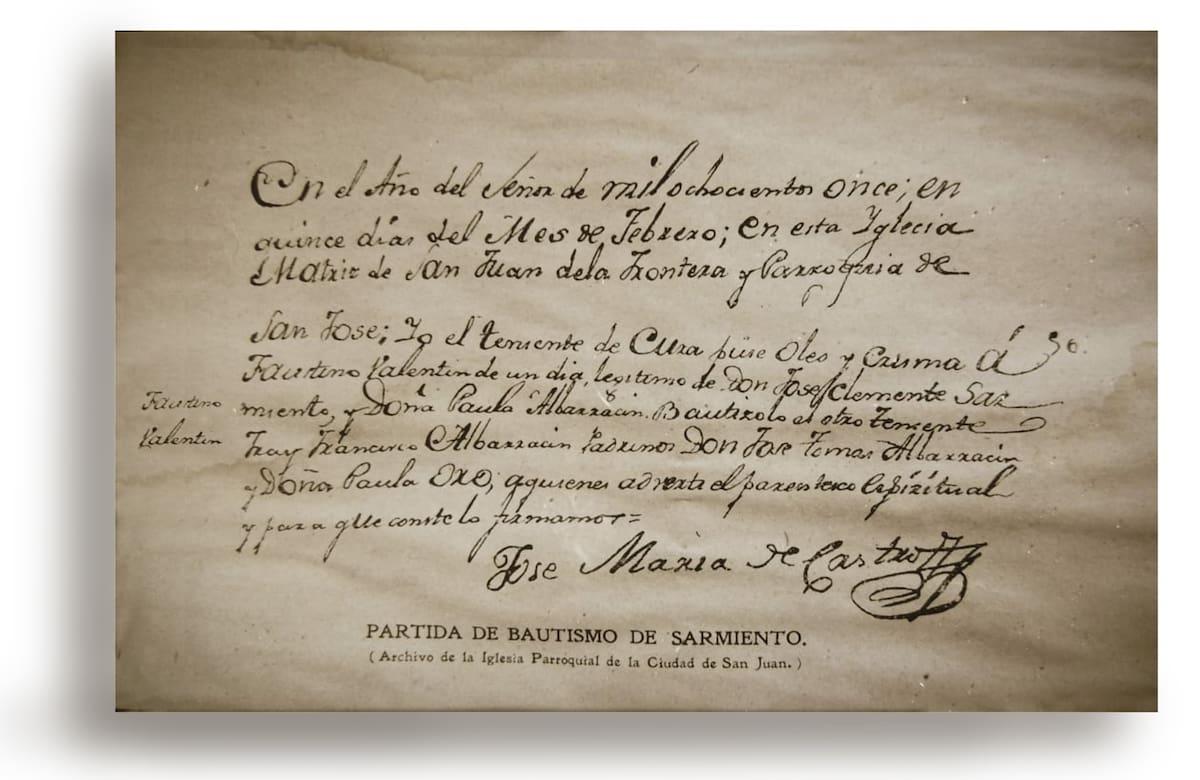 En el Año del Señor de mil ochocientos once; en
quince días del Mes de Febrero; en esta Yglecia
Matriz de San Juan dela Frontera y Parroquia de
San Jose; Yo el teniente de Cura puse Oleo y Crisma á
Faustino Valentin de un dia, legitimo de Don Jose Clemente Sar
miento, y Doña Paula Albarracin. Bautizolo el otro Teniente
Fray Francisco Albarracin Padrinos Don Jose Tomas Albarracin
y Doña Paula Oro, aquienes advertí el parentesco Espiritual
y para que conste lo firmamos=
Faustino
Valentin
Jose Maria de Castro
PARTIDA DE BAUTISMO DE SARMIENTO.
(Archivo de la Iglesia Parroquial de la Ciudad de San Juan.)